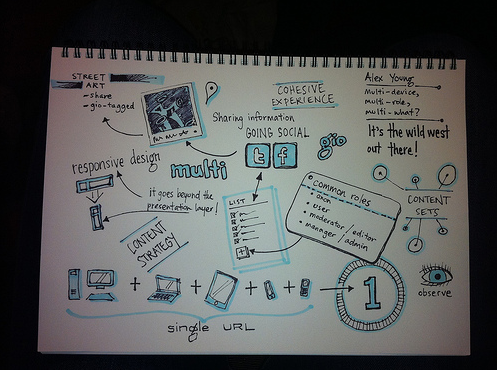 STREET
ART
- share
- gio-tagged
COHESIVE
EXPERIENCE
Alex Young
multi-device,
multi-role,
multi-what?
It's the wild west
out there!
Sharing information
GOING SOCIAL
t f
gio
responsive design
multi
it goes beyond the
presentation layer!
LIST
common roles
• anon
• user
• moderator / editor
• manager / admin
CONTENT
SETS
CONTENT
STRATEGY
+ + + +
1
observe
single URL